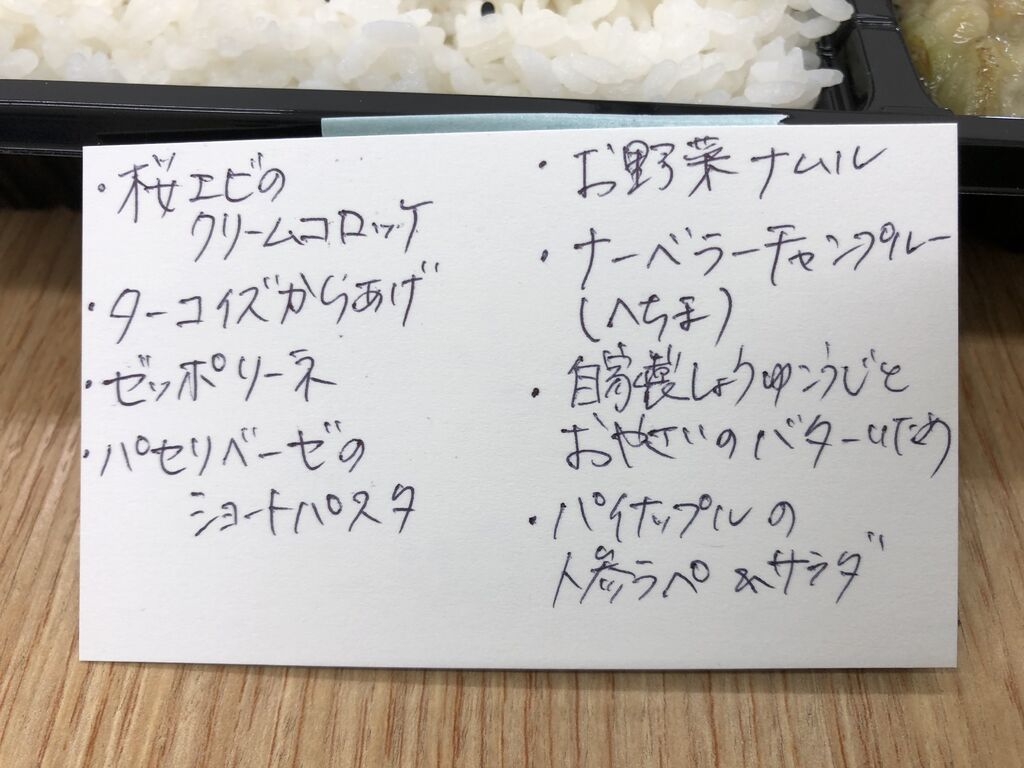 ・桜エビの
クリームコロッケ
・ターコイズからあげ
・ゼッポリーネ
・パセリベーゼの
ショートパスタ
・お野菜ナムル
・ナーベラーチャンプルー
(へちま)
・自家製しょうゆこうじと
おやさいのバターいため
・パイナップルの
人参ラペ&サラダ